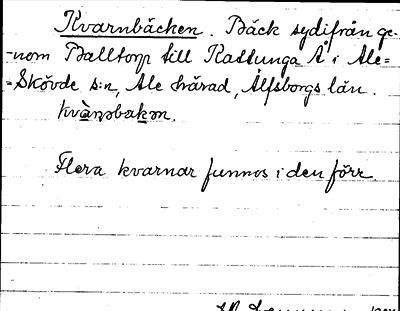 Kvarnbäcken. Bäck sydifrån ge-
-nom Balltorp till Kattunga Å i Ale=
=Skövde s:n, Ale härad, Älfsborgs län.
Flera kvarnar funnos i den förr.